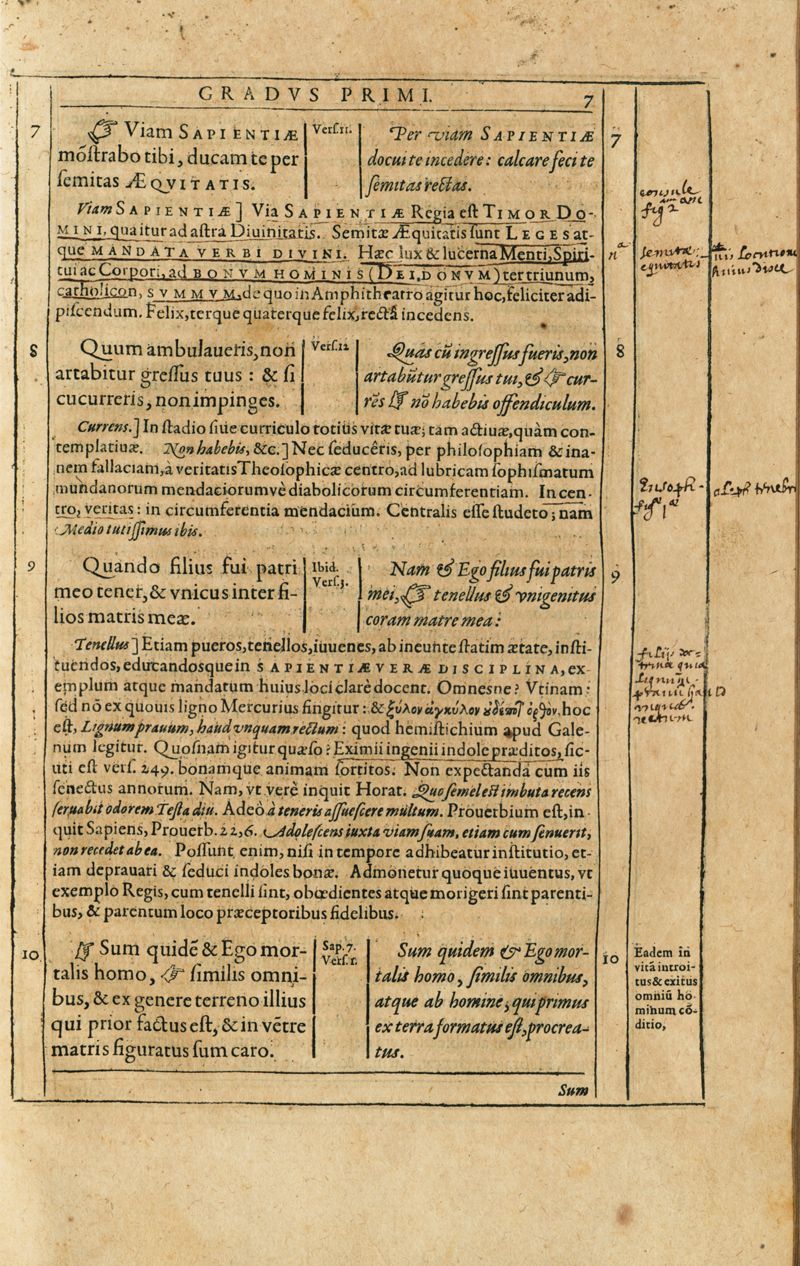 GRADVS PRIMI. 7
7 & Viam SAPIENTIÆ
mõſtrabo tibi, ducam te per
ſemitas ÆQVITATIS.
Verſ.11.
Per viam SAPIENTIÆ 7
docui te incedere: calcare feci te
ſemitas rectas.
Viam SAPIENTIÆ] Via SAPIENTIÆ Regia eſt TIMOR DO-
MINI, qua itur ad aſtra Diuinitatis. Semitæ Æquitatis ſunt LEGES at-
que MANDATA VERBI DIVINI. Hæc lux & lucerna Menti, Spiri-
tui ac Corpori, ad BONVM HOMINIS (DEI, DONVM) ter triunum,
catholicon, SVMMVM, de quo in Amphitheatro agitur hoc, feliciter adi-
piſcendum. Felix, terque quaterque felix, rectà incedens.
8 Quum ambulaueris, non
artabitur greſſus tuus : & ſi
cucurreris, non impinges.
Verſ.12
Quas cũ ingreſſus fueris, non 8
artabũtur greſſus tui, & & cur-
rẽs & nõ habebis offendiculum.
Currens.] In ſtadio ſiue curriculo totius vitæ tuæ; tam actiuæ, quàm con-
templatiuæ. Non habebis, &c.] Nec ſeducêris, per philoſophiam & ina-
nem fallaciam, à veritatis Theoſophicæ centro, ad lubricam ſophiſmatum
mundanorum mendaciorumvè diabolicorum circumferentiam. In cen-
tro, veritas: in circumferentia mendacium. Centralis eſſe ſtudeto; nam
Medio tutiſſimus ibis.
9 Quando filius fui patri
meo tener, & vnicus inter fi-
lios matris meæ.
Ibid.
Verſ.3.
Nam & Ego filius fui patris 9
mei, & tenellus & vnigenitus
coram matre mea:
Tenellus] Etiam pueros, tenellos, iuuenes, ab ineunte ſtatim ætate, inſti-
tuendos, educandosque in SAPIENTIÆ VERÆ DISCIPLINA, ex-
emplum atque mandatum huius loci clarè docent. Omnesne? Vtinam:
ſed nõ ex quouis ligno Mercurius fingitur: & ξύλον ἀγκύλον οὐδέποτ' ὀρθόν. hoc
eſt, Lignum prauum, haud vnquam rectum: quod hemiſtichium apud Gale-
num legitur. Quoſnam igitur quæſo? Eximii ingenii indole præditos, ſic-
uti eſt verſ. 249. bonamque animam ſortitos. Non expectanda cum iis
ſenectus annorum. Nam, vt verè inquit Horat. Quo ſemel eſt imbuta recens
ſeruabit odorem Teſta diu. Adeò à teneris aſſueſcere multum. Prouerbium eſt, in-
quit Sapiens, Prouerb. 22, 6. Adoleſcens iuxta viam ſuam, etiam cum ſenuerit,
non recedet ab ea. Poſſunt enim, niſi in tempore adhibeatur inſtitutio, et-
iam deprauari & ſeduci indoles bonæ. Admonetur quoque iuuentus, vt
exemplo Regis, cum tenelli ſint, obœdientes atque morigeri ſint parenti-
bus, & parentum loco præceptoribus fidelibus.
10 & Sum quidẽ & Ego mor-
talis homo, & ſimilis omni-
bus, & ex genere terreno illius
qui prior factus eſt, & in vẽtre
matris figuratus ſum caro.
Sap. 7.
Verſ. 1.
Sum quidem & Ego mor- 10
talis homo, ſimilis omnibus,
atque ab homine, qui primus
ex terra formatus eſt, procrea-
tus.
Eadem in
vitã introi-
tus & exitus
omniũ ho
minum cõ-
ditio,
Sum